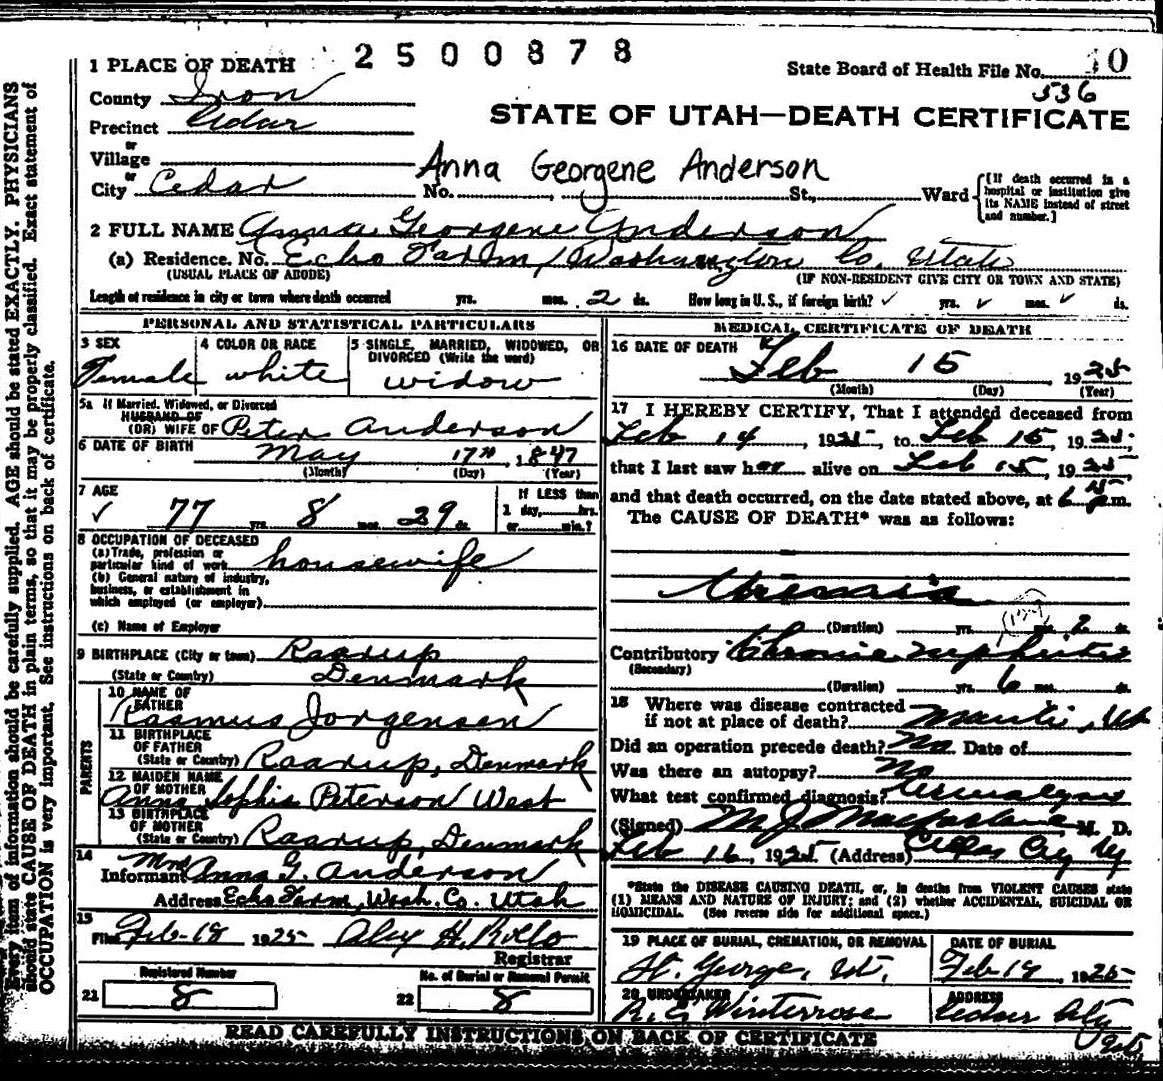 2500878
1 PLACE OF DEATH
State Board of Health File No. 10
536
County Iron
STATE OF UTAH—DEATH CERTIFICATE
Precinct Cedar
or
Village
Anna Georgene Anderson
or
City Cedar No. , St., Ward
[If death occurred in a hospital or institution give its NAME instead of street and number.]
2 FULL NAME Anna Georgene Anderson
(a) Residence. No. Echo Farm, Washington Co. Utah
(USUAL PLACE OF ABODE) (IF NON-RESIDENT GIVE CITY OR TOWN AND STATE)
Length of residence in city or town where death occurred yrs. mos. 2 ds. How long in U. S., if foreign birth? ✓ yrs. ✓ mos. ✓ ds.
PERSONAL AND STATISTICAL PARTICULARS
3 SEX
Female
4 COLOR OR RACE
white
5 SINGLE, MARRIED, WIDOWED, OR
DIVORCED (Write the word)
widow
5a If Married, Widowed, or Divorced
HUSBAND OF
(OR) WIFE OF Peter Anderson
6 DATE OF BIRTH May 17th, 1847
(Month) (Day) (Year)
7 AGE
✓ 77 yrs. 8 mos. 29 ds.
If LESS than
1 day, hrs.
or min.?
8 OCCUPATION OF DECEASED
(a) Trade, profession or
particular kind of work housewife
(b) General nature of industry,
business, or establishment in
which employed (or employer)
(c) Name of Employer
9 BIRTHPLACE (City or town) Raarup
(State or Country) Denmark
PARENTS
10 NAME OF
FATHER
Rasmus Jorgensen
11 BIRTHPLACE
OF FATHER
(State or Country) Raarup, Denmark
12 MAIDEN NAME
OF MOTHER
Anna Sophia Peterson West
13 BIRTHPLACE
OF MOTHER
(State or Country) Raarup, Denmark
14
Informant Mrs Anna G. Anderson
Address Echo Farm, Wash. Co. Utah
15
Filed Feb-18 1925 Alex H. Rollo
Registrar
Registered Number
21 8
No. of Burial or Removal Permit
22 8
MEDICAL CERTIFICATE OF DEATH
16 DATE OF DEATH
Feb 15, 1925
(Month) (Day) (Year)
17 I HEREBY CERTIFY, That I attended deceased from
Feb 14, 1925, to Feb 15, 1925,
that I last saw her alive on Feb 15, 1925
and that death occurred, on the date stated above, at 6 p.m.
The CAUSE OF DEATH* was as follows:
Uremia
(Duration) yrs. mos. 2 ds.
Contributory Chronic nephritis
(Secondary)
(Duration) yrs. 6 mos. ds.
18 Where was disease contracted
if not at place of death? Manti, Ut
Did an operation precede death? No Date of
Was there an autopsy? No
What test confirmed diagnosis? Urinalysis
(Signed) M. J. Macfarlane, M. D.
Feb 16, 1925 (Address) Cedar City Ut
*State the DISEASE CAUSING DEATH, or, in deaths from VIOLENT CAUSES state
(1) MEANS AND NATURE OF INJURY; and (2) whether ACCIDENTAL, SUICIDAL OR
HOMICIDAL. (See reverse side for additional space.)
19 PLACE OF BURIAL, CREMATION, OR REMOVAL
St. George, Ut.
DATE OF BURIAL
Feb 19 1925
20 UNDERTAKER
R. C. Winterrose
ADDRESS
Cedar City
READ CAREFULLY INSTRUCTIONS ON BACK OF CERTIFICATE
Every item of information should be carefully supplied. AGE should be stated EXACTLY. PHYSICIANS
should state CAUSE OF DEATH in plain terms, so that it may be properly classified. Exact statement of
OCCUPATION is very important. See instructions on back of certificate.